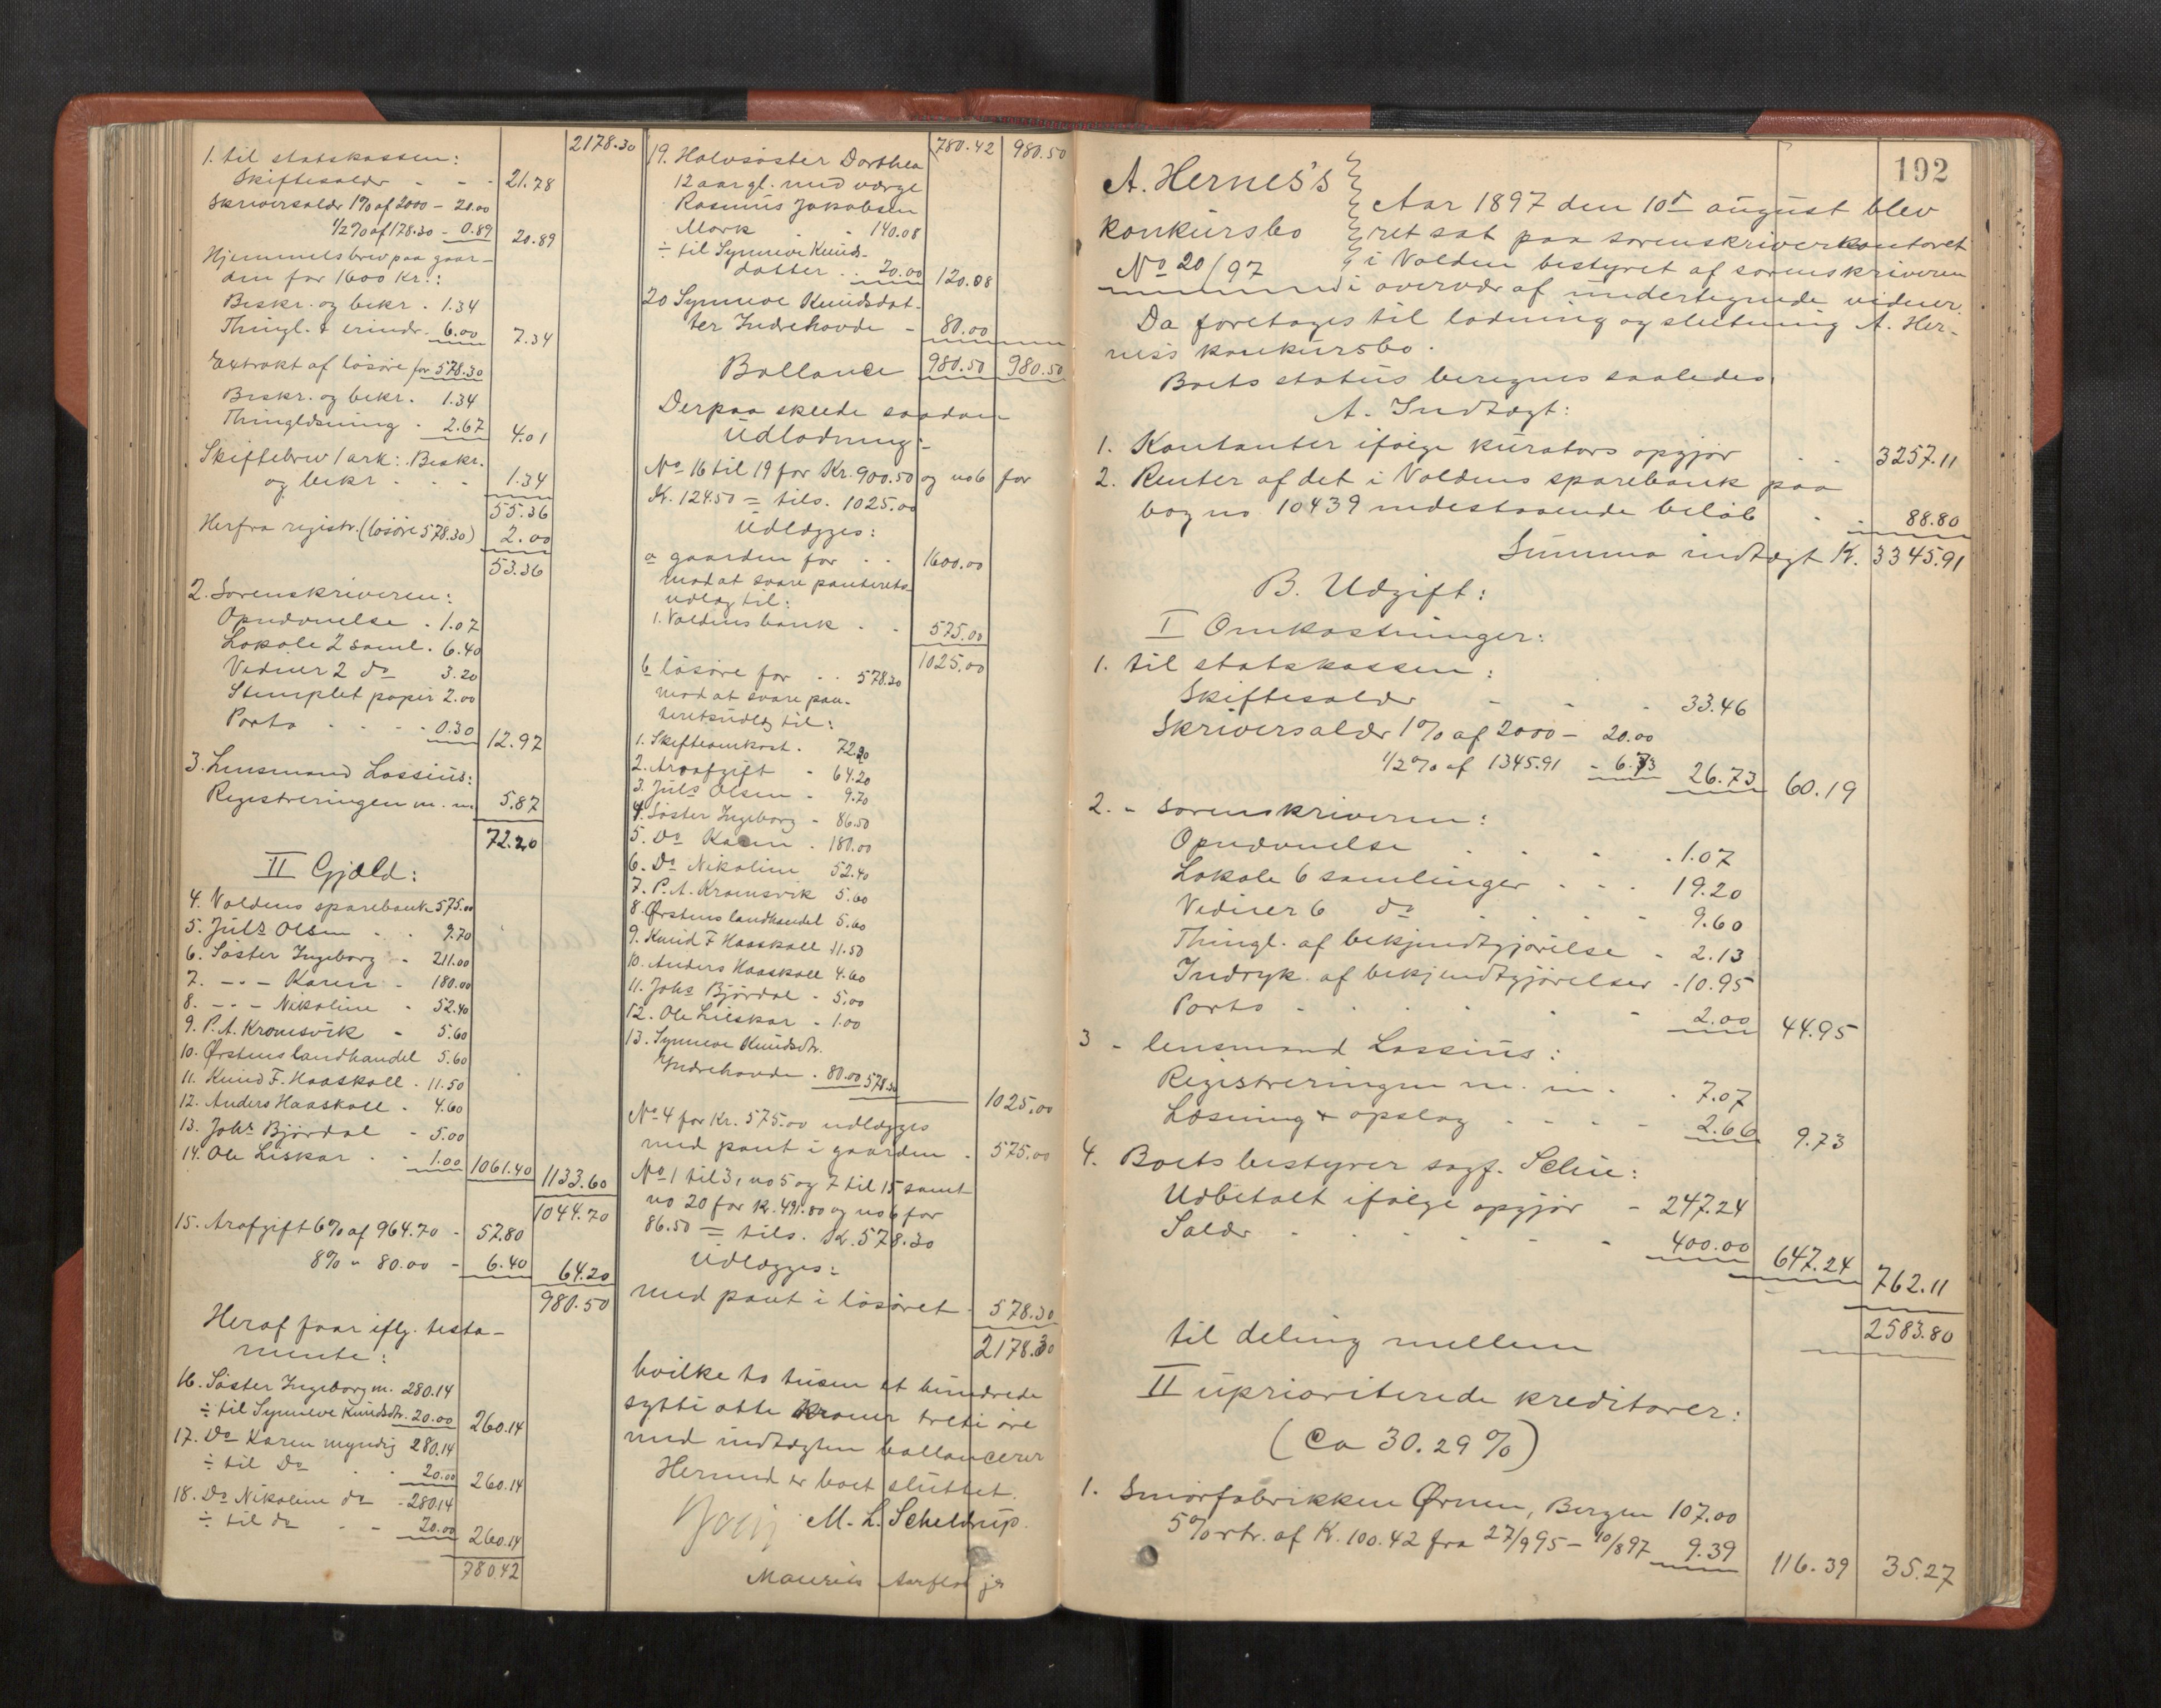 2178.30
1. til statskassen:
Skiftesalær - - - 21.78
Skriversalær 1% af 2000 - 20.00
1/2% af 178.30 - 0.89 20.89
Hjemmelsbrev paa gaar-
den for 1600 Kr.:
Beskr. og bekr. - 1.34
Thingl. & erindr. 6.00 7.34
Extrakt af løsøre for 578.30
Beskr. og bekr. 1.34
Thinglæsning - 2.67 4.01
Skiftebrev 1 ark: Beskr.
og bekr - - - 1.34
55.36
Herfra registr. (løsøre 578.30) 2.00
53.36
2. Sorenskriveren:
Opnævnelse - 1.07
Lokale 2 saml. 6.40
Vidner 2 do 3.20
Stemplet papir 2.00
Porto - - - - 0.30 12.97
3. Lensmand Lassius:
Registreringen m. m 5.87
72.20
II Gjæld:
4. Voldens sparebank 575.00
5. Juls Olsen - - 9.70
6. Søster Ingeborg - 211.00
7. - " - Karen - 180.00
8. - " - Nikoline - 52.40
9. P. A. Kromsvik - 5.60
10. Ørstens landhandel 5.60
11. Knud F. Haaskoll - 11.50
12. Anders Haaskoll - 4.60
13. Johs Bjørdal - 5.00
14. Ole Liskar - - 1.00 1061.40 1133.60
1044.70
15. Arafgift 6% af 964.70 - 57.80
8% " 80.00 - 6.40 64.20
980.50
Heraf faar iflg. testa-
mente:
16. Søster Ingeborg m. 280.14
÷ til Synneve Knudsdtr. 20.00 260.14
17. Do Karen myndig 280.14
÷ til Do - - 20.00 260.14
18. Do Nikoline do - 280.14
÷ til do - - 20.00 260.14
780.42
780.42 980.50
19. Halvsøster Dorthea
12 aar gl. med værge
Rasmus Jakobsen
Mork - - 140.08
÷ til Synneve Knuds-
datter - - 20.00 120.08
20 Synneve Knudsdat-
ter Indrehovde - 80.00
Ballance 980.50 980.50
Derpaa skeede saadan
Udlodning:
No 16 til 19 for Kr. 900.50 og no 6 for
K. 124.50 = tils. 1025.00
Udlægges:
a gaarden for - - 1600.00
mod at svare panterets-
udlæg til:
1. Voldens bank - - 575.00
1025.00
b løsøre for - - 578.30
mod at svare pan-
teretsudlæg til:
1. Skifteomkost. 72.20
2. Arvafgift - 64.20
3. Juls Olsen - 9.70
4. Søster Ingeborg - 86.50
5. Do Karen - 180.00
6. Do Nikoline 52.40
7. P. A. Kromsvik 5.60
8. Ørstens landhandel 5.60
9. Knud F Haaskoll 11.50
10. Anders Haaskoll 4.60
11. Johs Bjørdal - 5.00
12. Ole Lieskar - 1.00
13. Synneve Knudsdtr.
Indrehovde - 80.00 578.30
1025.00
No 4 for Kr. 575.00 udlægges
med pant i gaarden - 575.00
No 1 til 3, no 5 og 7 til 15 samt
no 20 for K. 491.80 og no 6 for
86.50 = tils. K. 578.30
Udlægges:
med pant i løsøret - 578.30
2178.30
hvilke to tusen et hundrede
sytti otte Kroner treti øre
med indtægten ballancerer
Hermed er boet sluttet.
M. L. Scheldrup.
Maurits Aarflot jr
192
A. Hernes's
konkursbo
No 20/97
Aar 1897 den 10de august blev
ret sat paa sorenskriverkontoret
i Volden bestyret af sorenskriveren
i overvær af undertegnede vidner.
Da foretoges til lodning og slutning A. Her-
nes's konkursbo.
Boets status beregnes saaledes:
A. Indtægt:
1. Kontanter ifølge kurators opgjør - - 3257.11
2. Renter af det i Voldens sparebank paa
bog no 10439 indestaaende beløb - - 88.80
Summa indtægt K. 3345.91
B. Udgift:
I Omkostninger:
1. til statskassen:
Skiftesalær - - - 33.46
Skriversalær 1% af 2000 - 20.00
1/2% af 1345.91 - 6.73 26.73 60.19
2. - sorenskriveren:
Opnævnelse - - - - 1.07
Lokale 6 samlinger - - - 19.20
Vidner 6 do - - - - 9.60
Thingl. af bekjendtgjørelse - 2.13
Indryk. af bekjendtgjørelser - 10.95
Porto - - - - - 2.00 44.95
3 - lensmand Lassius:
Registreringen m. m. - - 7.07
Læsning & opslag - - - - 2.66 9.73
4. Boets bestyrer sagf. Schue:
Udbetalt ifølge opgjør - 247.24
Salær - - - - - 400.00 647.24 762.11
2583.80
til deling mellem
II uprioriterede kreditorer:
(Ca 30.29%)
1. Smørfabrikken Ørnen, Bergen 107.00
5% rtr. af K. 100.42 fra 27/9 95 - 10/8 97 9.39 116.39 35.27